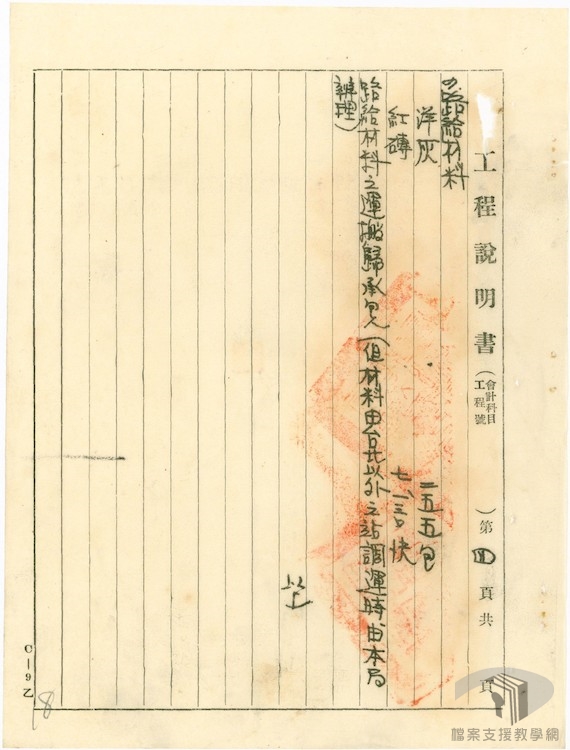 工程說明書(會計科目工程號)第四頁共 頁
路給材料
洋灰 二五五包
紅磚
路給材料之運搬歸承包(但材料由台北以外之站調運時由本局
辦理)
以上
C—9乙
8
檔案支援教學網